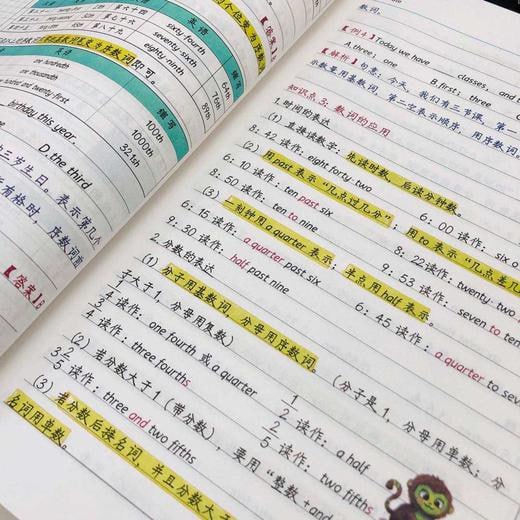 英语
缩写
第六十四
sixty fourth
64th
第七十六
seventy sixth
76th
第八十九
eighty ninth
89th
英语
缩写
one hundredth
100th
one thousandth
1000th
321st
birthday this year.
D. the third
【答案】B
数词。
【例1】Today we have
classes, and
A. three; one
B. first; three
【解析】句意：今天，我们有三节课，第一
示数量用基数词，第二空表示顺序，用序数词。
知识点3：数词的应用
1. 时间的表达
（1）直接读数字：先读时数，后读分钟数。
8：42 读作：eight forty-two
6：00 读作：six o
（2）用past表示“几点过几分”；用to表示“几点差几
6：10 读作：ten past six
8：50 读作：ten to nine
8：22 读作：twenty-two
（3）一刻钟用a quarter表示；半点用half表示。
6：15 读作：a quarter past six
9：53 读作：seven to ten
9：30 读作：half past nine
6：45 读作：a quarter to seven
2. 分数的表达
（1）分子用基数词，分母用序数词。（分子是1，分母用单数；分
子大于1，分母用复数）
1/4 读作：one fourth 或 a quarter
1/2 读作：a half
3/4 读作：three fourths
2/5 读作：two fifths
（2）若分数大于1（带分数），要用“整数+and
3 2/5 读作：three and two fifths
（3）若分数后接名词，并且分数大于
名词用单数。